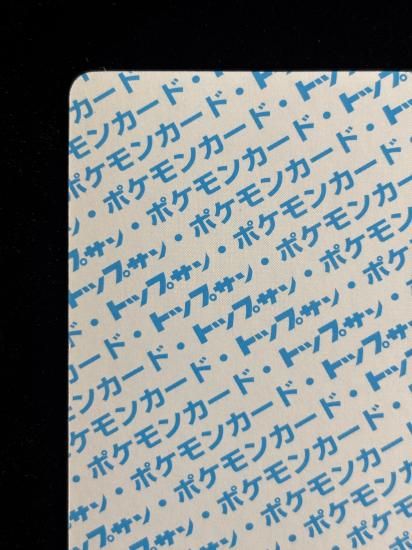 カード
モンカード・
ポケモンカード・
・ポケモンカード・トップ
サン・ポケモンカード・トッ
プサン・ポケモンカード・
トップサン・ポケモンカー
・トップサン・ポケモン
ード・トップサン・ポケ
ンカード・トップサン・
ケモンカード・トップサン
ポケモンカード・トップ
・ポケモンカード・
サン・ポケモンカード
トップサン・ポケモン
・ポケモ
ポケ